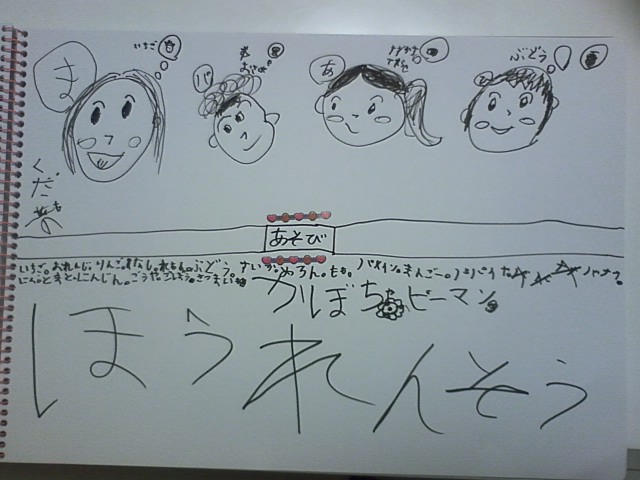 いちご
ま
バ
あ
ぶどう
くだもの
あそび
いちご。おれんじ。りんご。すなし。れもん。ぶどう。すいか。めろん。もも。パイン。まんごー。パパイヤ。バナナ。
にん。とまと。にんじん。ごうや。
かぼちゃ ピーマン。
ほうれんそう